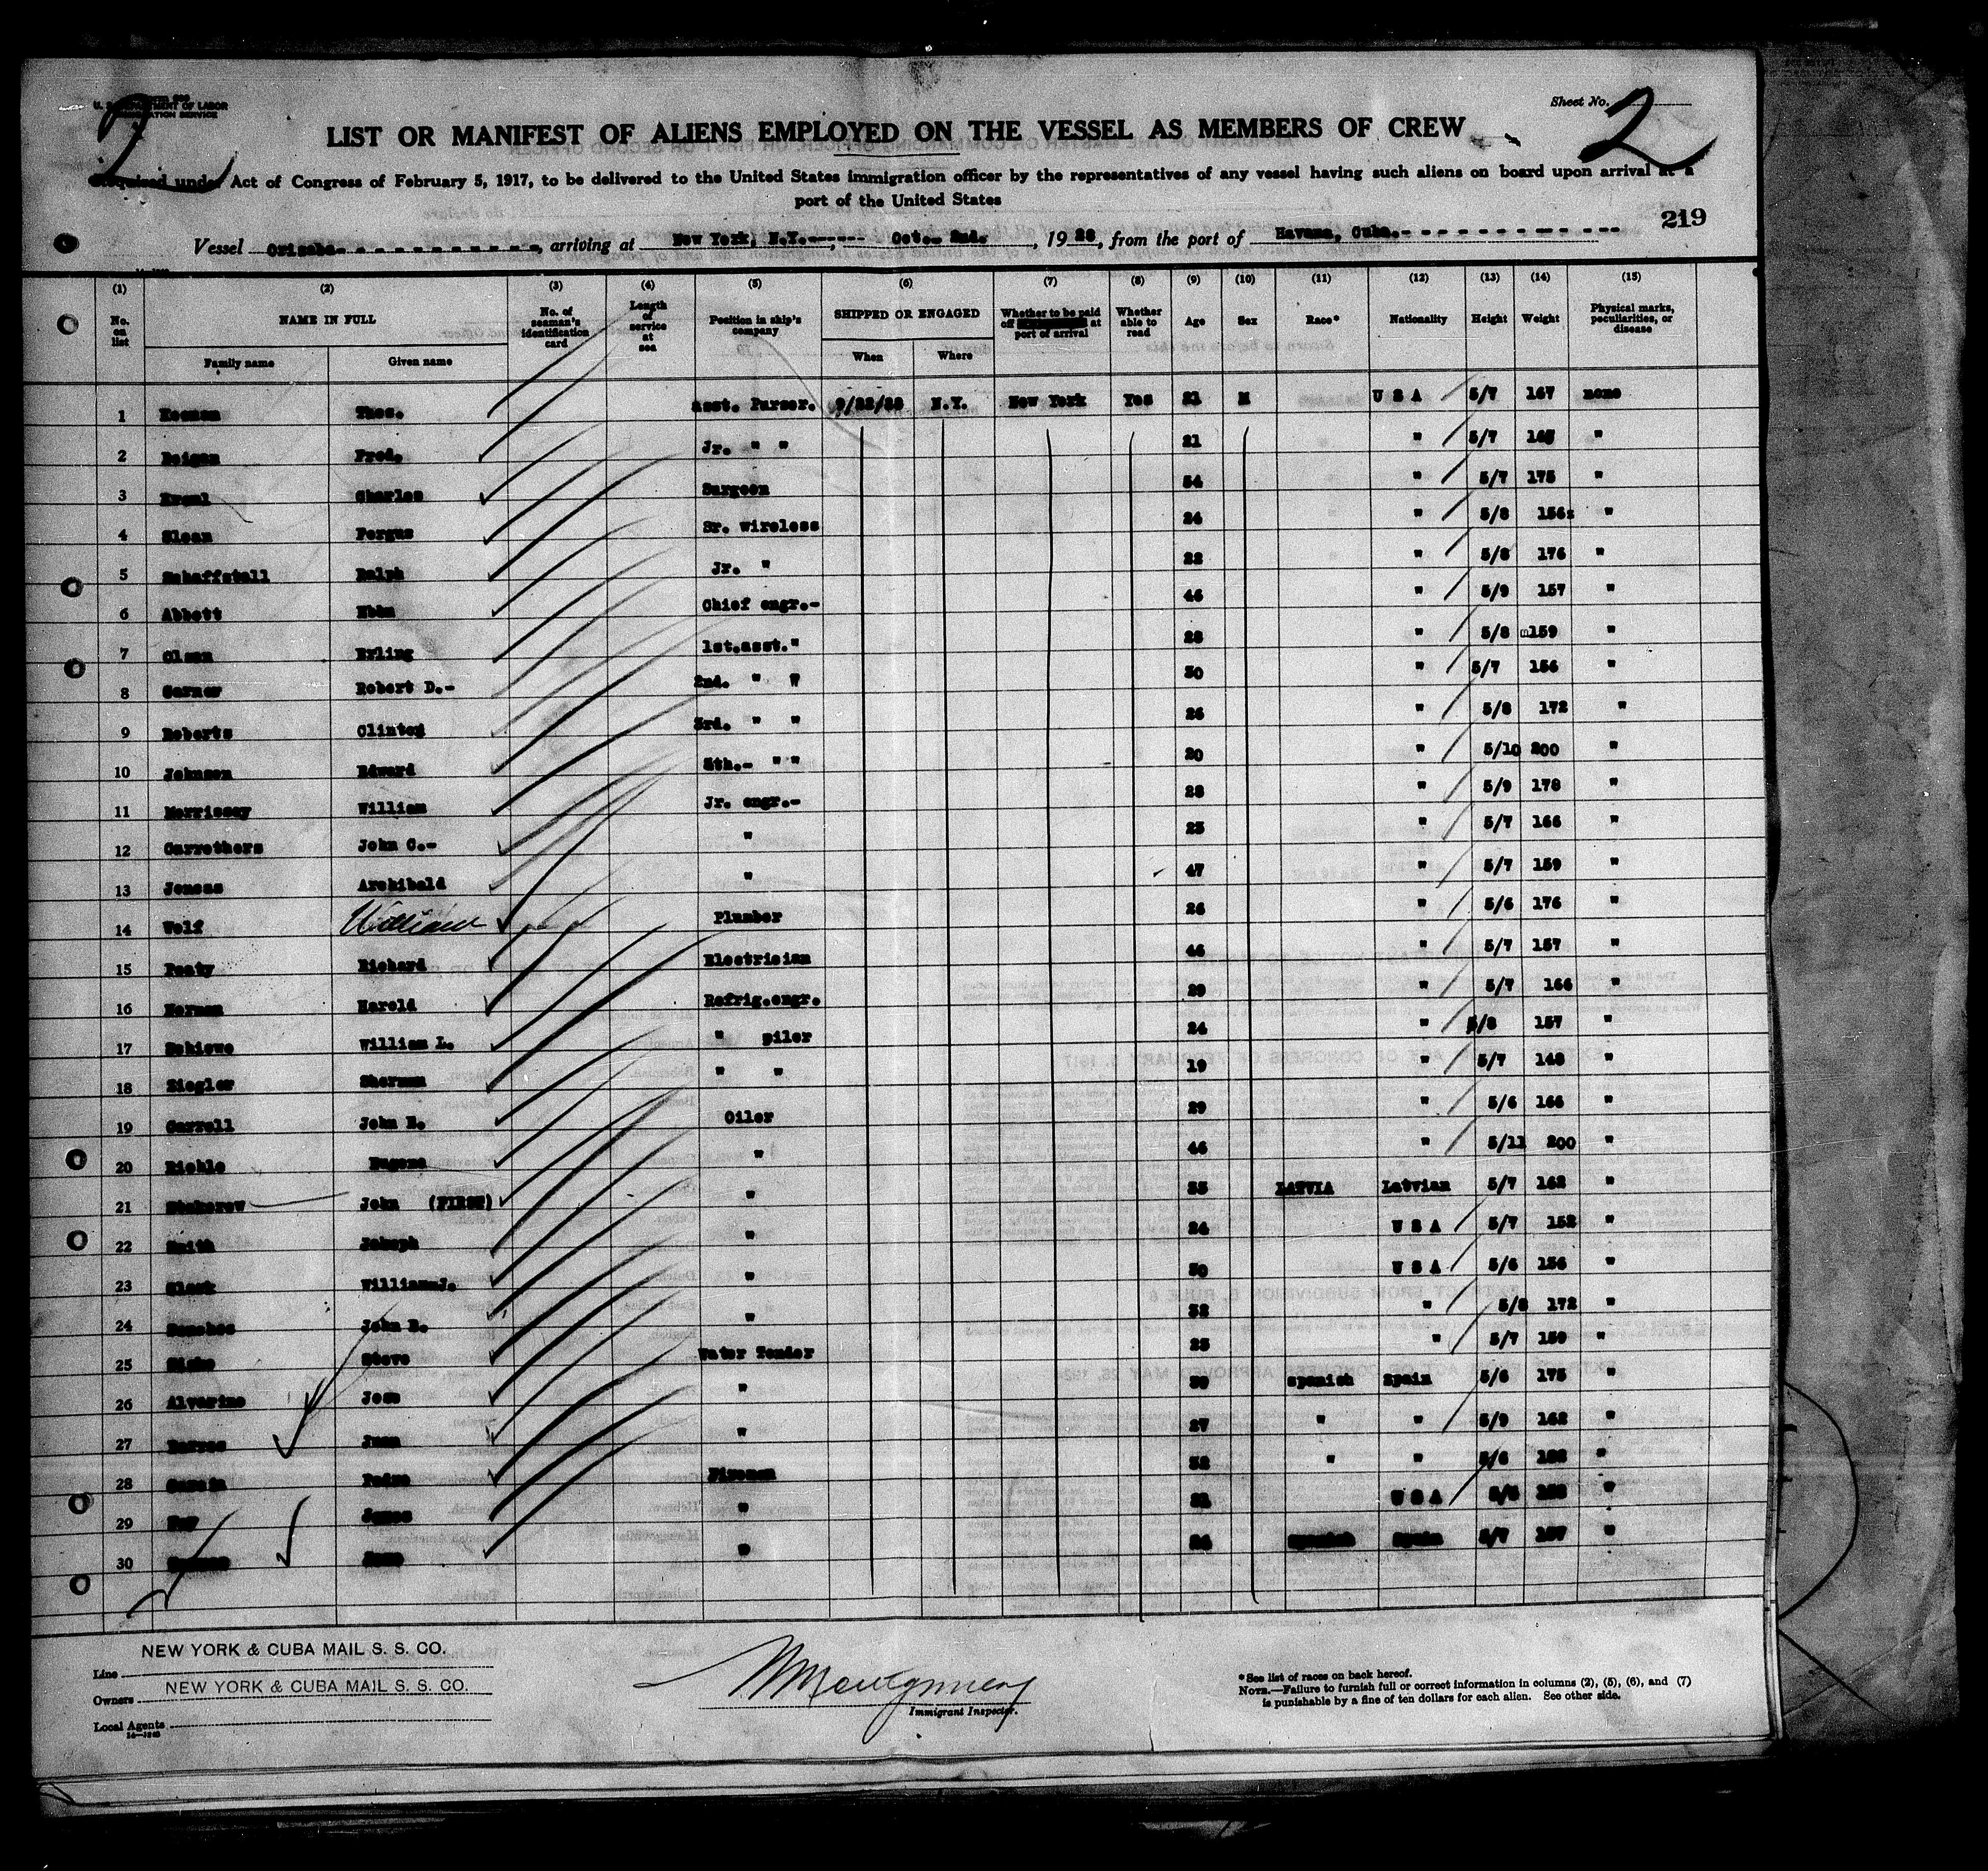 U. S. DEPARTMENT OF LABOR
IMMIGRATION SERVICE
2
Sheet No. 2
LIST OR MANIFEST OF ALIENS EMPLOYED ON THE VESSEL AS MEMBERS OF CREW
Required under Act of Congress of February 5, 1917, to be delivered to the United States immigration officer by the representatives of any vessel having such aliens on board upon arrival at a
port of the United States
219
Vessel Orizaba, arriving at New York, N.Y. Oct. 2nd. , 1928, from the port of Havana, Cuba.
(1) (2) (3) (4) (5) (6) (7) (8) (9) (10) (11) (12) (13) (14) (15)
No. on list NAME IN FULL No. of seaman's identification card Length of service at sea Position in ship's company SHIPPED OR ENGAGED Whether to be paid off at port of arrival Whether able to read Age Sex Race* Nationality Height Weight Physical marks, peculiarities, or disease
Family name Given name When Where
1 Keenan Thos. asst. Purser. 9/22/28 N.Y. New York Yes 21 M U S A 5/7 167 none
2 Fred. Jr. " " 21 " 5/7 "
3 Charles Surgeon 54 " 5/7 175 "
4 Sloan Fergus Sr. wireless 24 " 5/8 156 "
5 Schaffstall Ralph Jr. " 22 " 5/8 176 "
6 Abbott Eban Chief engr.- 46 " 5/9 157 "
7 Olsen Erling 1st.asst." 28 " 5/8 159 "
8 Garner Robert D.- 2nd. " " 30 " 5/7 156 "
9 Roberts Clinton 3rd. " " 26 " 5/8 172 "
10 Johnson Edward 5th.- " " 20 " 5/10 200 "
11 Morrissey William Jr. engr.- 28 " 5/9 178 "
12 Carrothers John C.- " 25 " 5/7 166 "
13 Archibald " 47 " 5/7 159 "
14 Wolf William Plumber 26 " 5/6 176 "
15 Peaty Richard Electrician 46 " 5/7 157 "
16 Harold Refrig.engr. 29 " 5/7 166 "
17 Schiewe William L. " piler 24 " 5/8 157 "
18 Ziegler Sherman " " 19 " 5/7 148 "
19 Carroll John H. Oiler 29 " 5/6 166 "
20 Eugene " 46 " 5/11 200 "
21 John (FIRST) " 35 LATVIA Latvian 5/7 162 "
22 Smith Joseph " 24 U S A 5/7 152 "
23 William J. " 30 U S A 5/6 156 "
24 John B. " 32 " 5/8 172 "
25 Steve Water Tender 25 " 5/7 159 "
26 Alvarino Jose " 39 Spanish Spain 5/6 175 "
27 Juan " 27 " " 5/9 162 "
28 Garcia Pedro Fireman 32 " " 5/6 "
29 James " U S A "
30 Jose " Spanish Spain 5/7 157 "
NEW YORK & CUBA MAIL S. S. CO.
Line
Owners NEW YORK & CUBA MAIL S. S. CO.
Local Agents
Montgomery
Immigrant Inspector.
* See list of races on back hereof.
NOTE.—Failure to furnish full or correct information in columns (2), (5), (6), and (7)
is punishable by a fine of ten dollars for each alien. See other side.